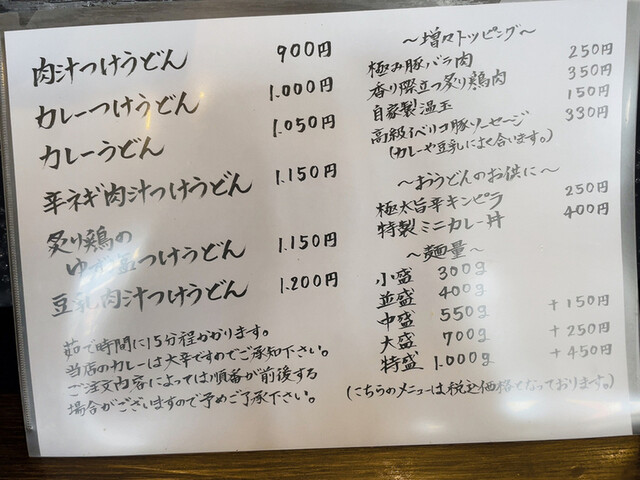 肉汁つけうどん 900円
カレーつけうどん 1.000円
カレーうどん 1.050円
辛ネギ肉汁つけうどん 1.150円
炙り鶏の
つけうどん 1.150円
豆乳肉汁つけうどん 1.200円
茹で時間に15分程かかります。
当店のカレーは大辛ですのでご承知下さい。
ご注文内容によっては順番が前後する
場合がございますので予めご了承下さい。
～増々トッピング～
極み豚バラ肉 250円
香り際立つ炙り鶏肉 350円
自家製温玉 150円
高級イベリコ豚ソーセージ 330円
(カレーや豆乳によく合います。)
～おうどんのお供に～
極太旨辛キンピラ 250円
特製ミニカレー丼 400円
～麺量～
小盛 300g
並盛 400g
中盛 550g +150円
大盛 700g +250円
特盛 1.000g +450円
(こちらのメニューは税込価格となっております。)